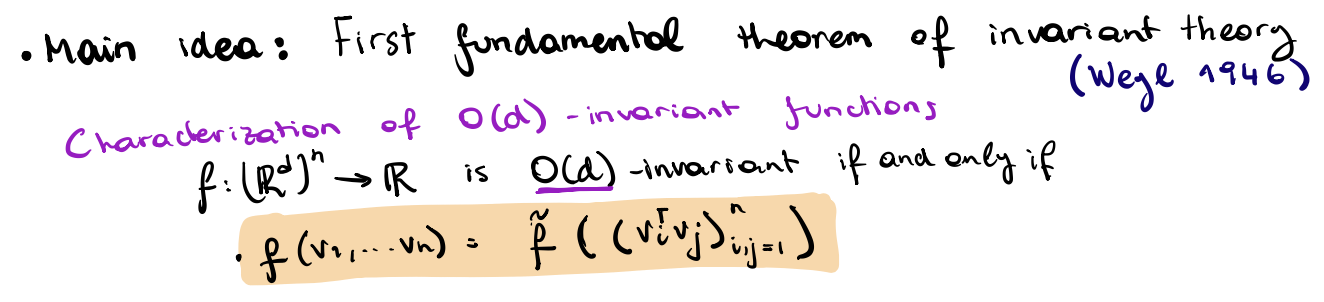 • Main idea: First fundamental theorem of invariant theory
(Weyl 1946)
Characterization of O(d)-invariant functions
f: (ℝᵈ)ⁿ → ℝ is O(d)-invariant if and only if
• f(v₁,...vₙ) = f̃ ((vᵢᵀvⱼ)ⁿᵢ,ⱼ₌₁)